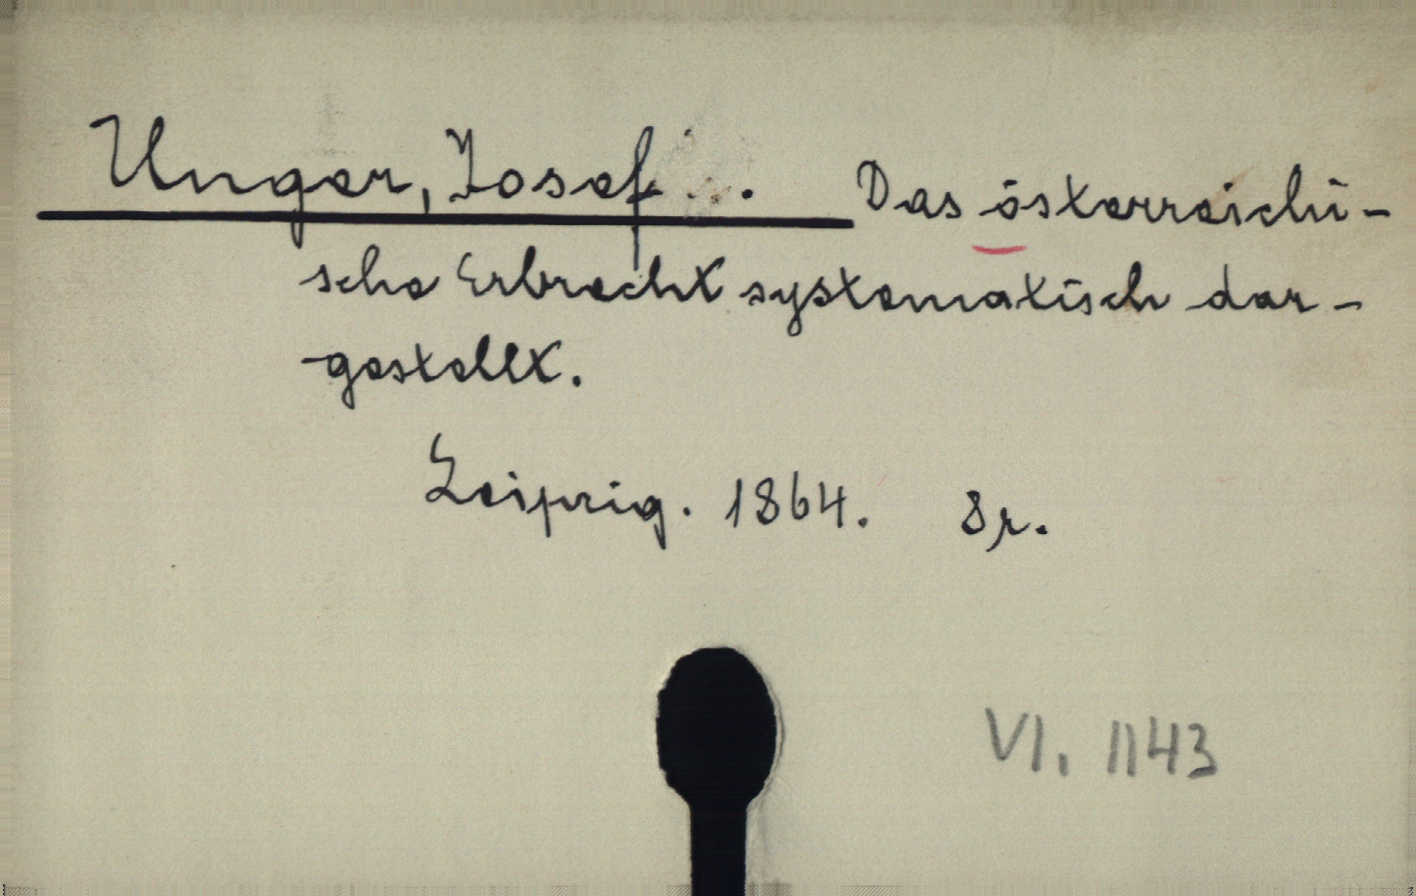 Unger, Josef ... Das österreichi-
sche Erbrecht systematisch dar-
gestellt.
Leipzig. 1864. 8r.
VI. 1143